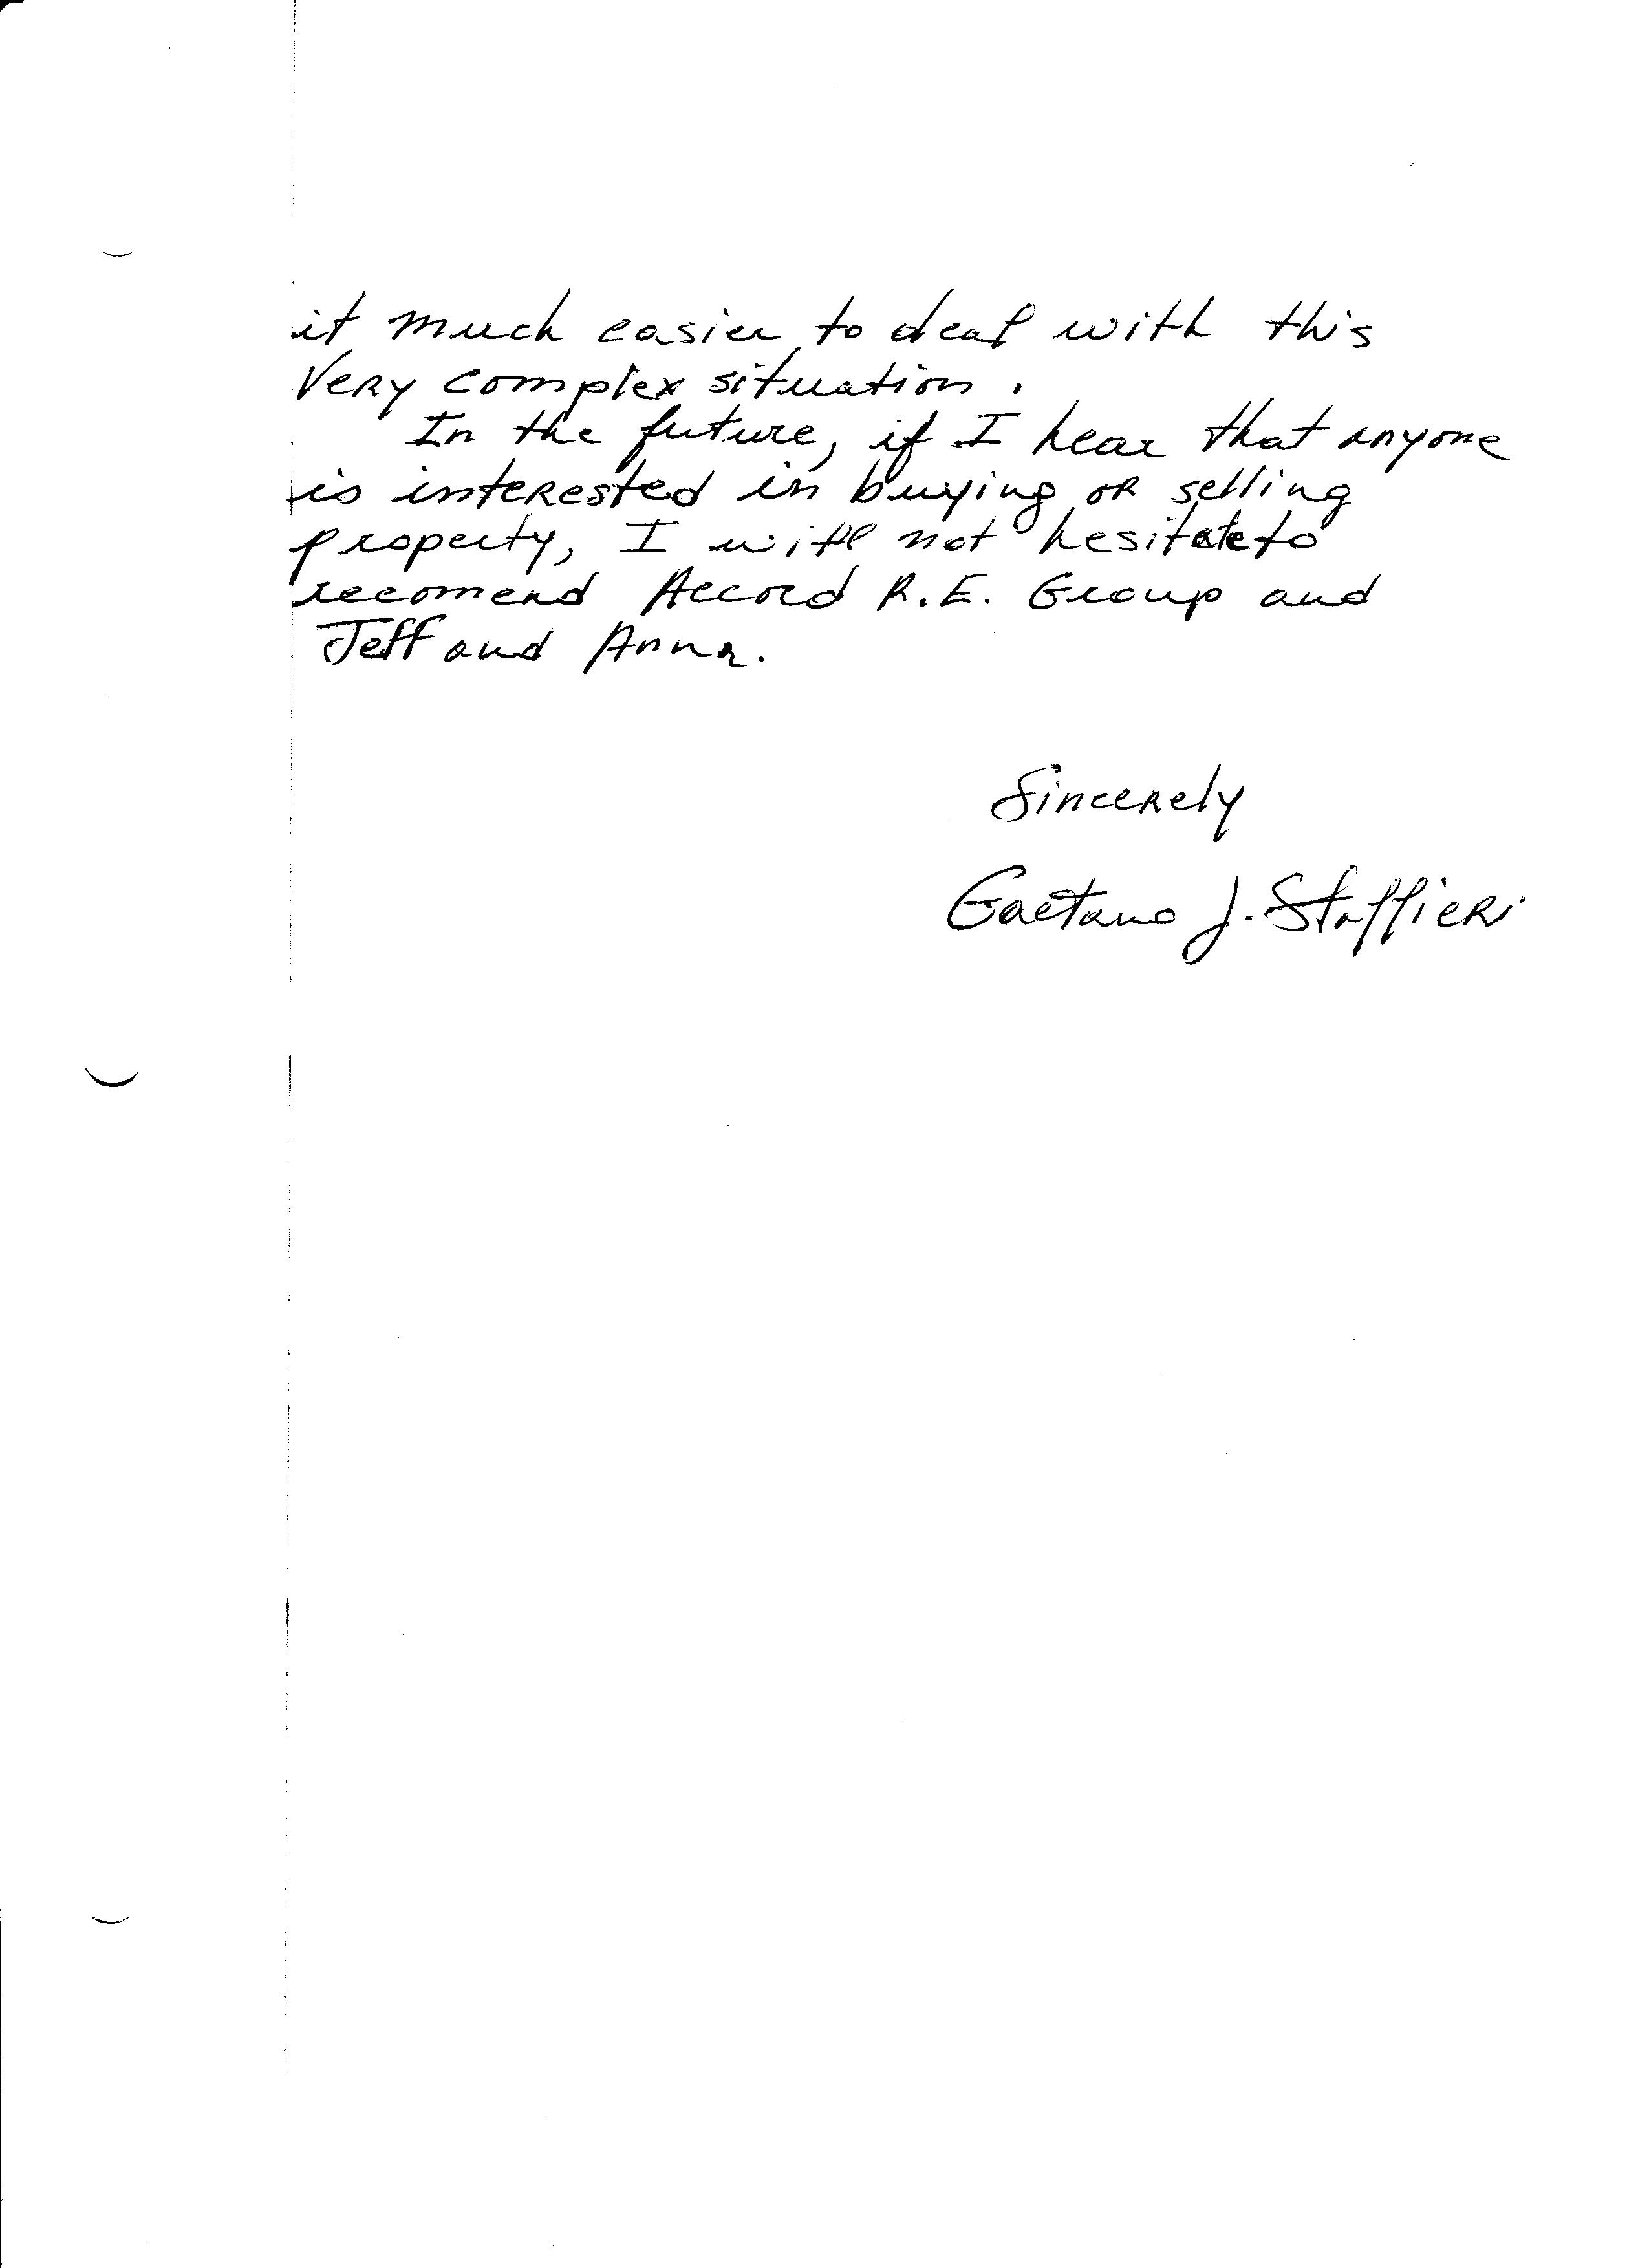 it much easier to deal with this
very complex situation.
In the future, if I hear that anyone
is interested in buying or selling
property, I will not hesitate to
recomend Accord R.E. Group and
Jeff and Anna.
Sincerely
Gaetano J. Staffieri